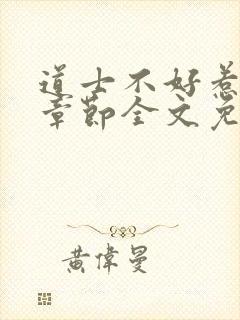 道士不好惹
章節全文免
黃偉曼